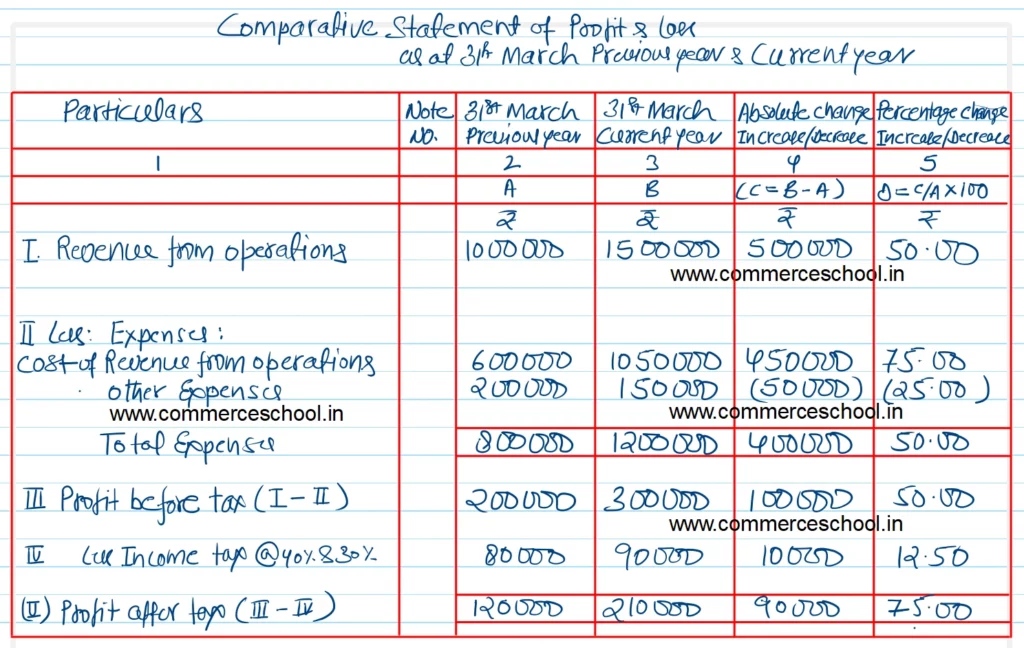 Comparative Statement of Profit & loss
as at 31st March Previous year & Current year
Particulars Note No. 31st March Previous year 31st March Current year Absolute change Increase/Decrease Percentage change Increase/Decrease
1 2 3 4 5
A B (C=B-A) D=C/A×100
₹ ₹ ₹ ₹
I. Revenue from operations 1000000 1500000 500000 50.00
www.commerceschool.in
II Less: Expenses:
Cost of Revenue from operations 600000 1050000 450000 75.00
Other Expenses 200000 150000 (50000) (25.00)
www.commerceschool.in www.commerceschool.in
Total Expenses 800000 1200000 400000 50.00
III Profit before tax (I-II) 200000 300000 100000 50.00
www.commerceschool.in
IV Less Income tax @40% & 30% 80000 90000 10000 12.50
(II) Profit after tax (III-IV) 120000 210000 90000 75.00